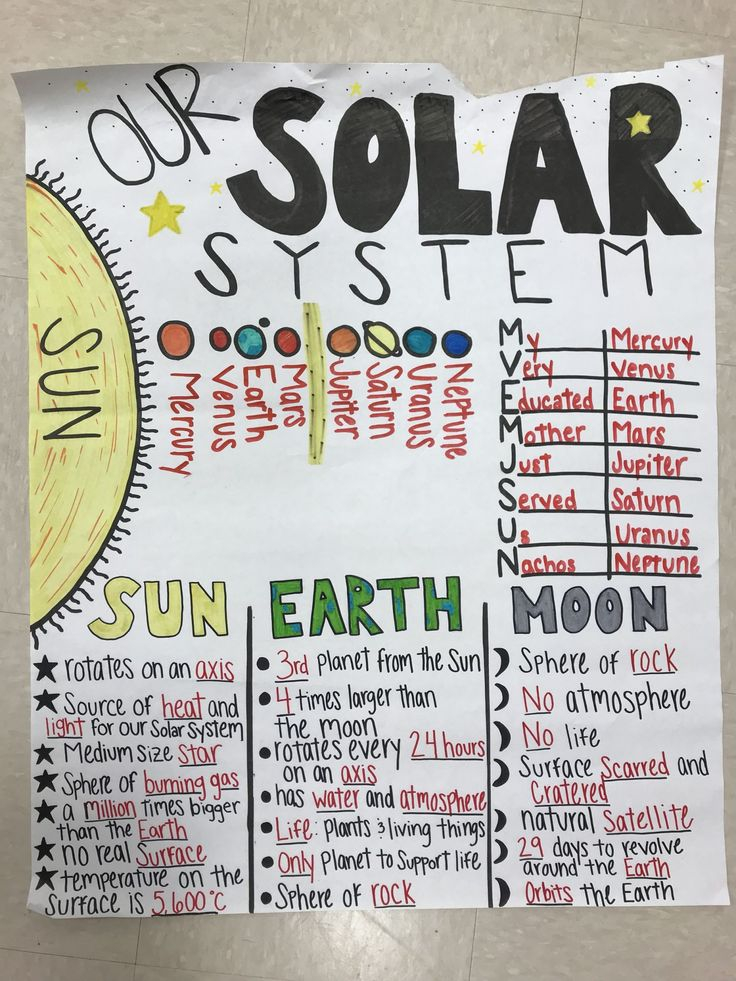 OUR SOLAR
SYSTEM
SUN
Mercury
Venus
Earth
Mars
Jupiter
Saturn
Uranus
Neptune
My Mercury
Very Venus
Educated Earth
Mother Mars
Just Jupiter
Served Saturn
Us Uranus
Nachos Neptune
SUN
rotates on an axis
Source of heat and
light for our Solar System
Medium Size Star
Sphere of burning gas
a million times bigger
than the Earth
no real Surface
temperature on the
Surface is 5,600°C
EARTH
3rd Planet from the Sun
4 times larger than
the moon
rotates every 24 hours
on an axis
has water and atmosphere
Life: Plants & living things
Only Planet to Support life
Sphere of rock
MOON
Sphere of rock
No atmosphere
No life
Surface Scarred and
Cratered
natural Satellite
29 days to revolve
around the Earth
Orbits the Earth